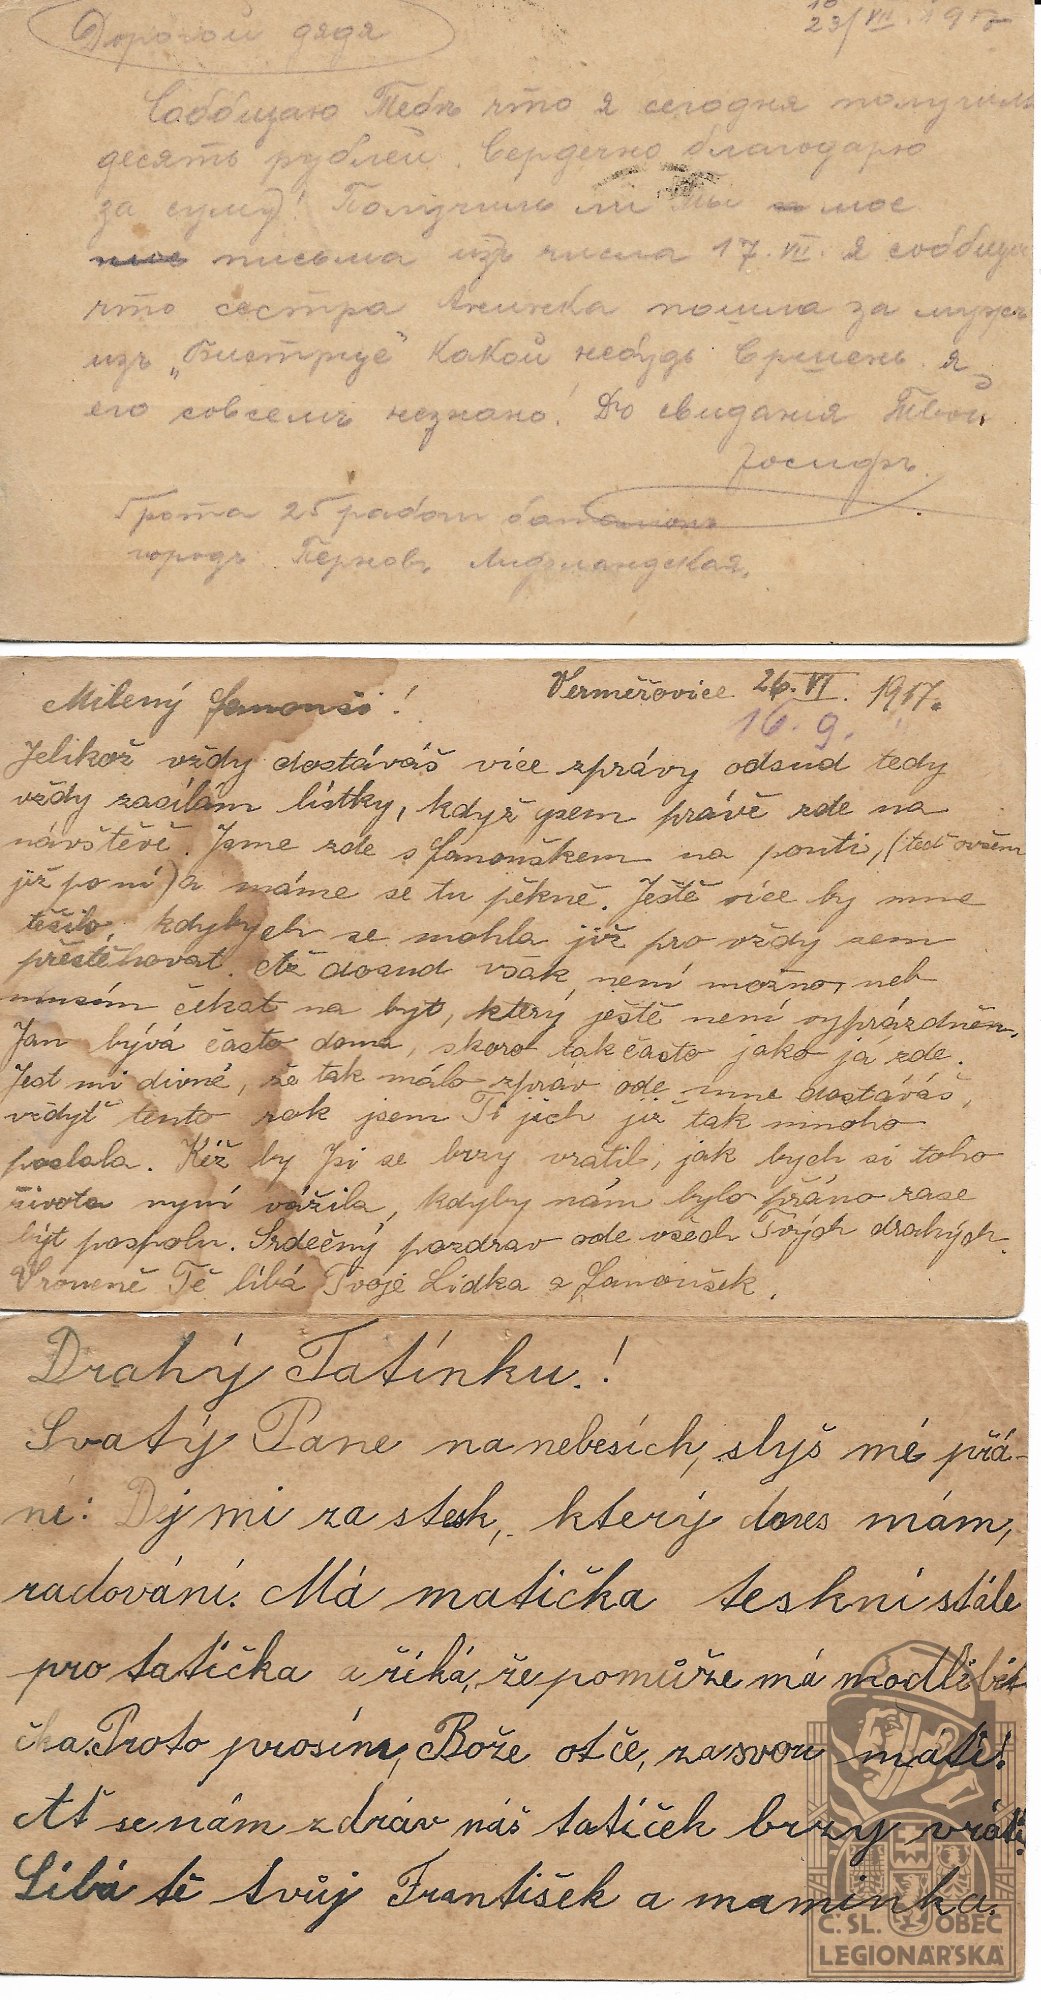 10
23/VII. 1917
Дорогой дядя
Сообщаю Тебѣ что я сегодня получилъ
десять рублей. Сердечно благодарю
за суму! Получилъ ли Ты мое
письма изъ числа 17. VII. я сообщи
что сестра Анижка пошла за мужъ
изъ „Бистрице" какой небудь я
его совсемъ незнаю! До свидания Твой
Іосифъ.
рота 25 работ баталионъ
городъ Перновъ Лифляндская.
Milený Janouši!
Verměřovice 26. VI. 1917.
16. 9.
Jelikož vždy dostáváš více zprávy odsud tedy
vždy zasílám lístky, když jsem právě zde na
návštěvě. Jsme zde s Janouškem na pouti, (teď ovšem
již po ní) a máme se tu pěkně. Ještě více by mne
těšilo, kdybych se mohla již pro vždy sem
přestěhovat. Až dosud však není možno, neb
musím čekat na byt, který ještě není vyprázdněn.
Jan bývá často doma, skoro tak často jako já zde.
Jest mi divné, že tak málo zpráv ode mne dostáváš,
vždyť tento rok jsem Ti jich již tak mnoho
poslala. Kéž by jsi se brzy vrátil, jak bych si toho
života nyní vážila, kdyby nám bylo přáno zase
být pospolu. Srdečný pozdrav ode všech Tvých drahých.
Vroucně Tě líbá Tvoje Lidka a Janoušek.
Drahý Tatínku.!
Svatý Pane na nebesích, slyš mé přá-
ní: Dej mi za stesk, který dnes mám,
radování. Má matička teskní stále
pro tatíčka a říká, že pomůže má modlitbit
čka. Proto prosím, Bože otče, za svou máti!
Ať se nám zdráv náš tatíček brzy vrátí.
Líbá tě tvůj František a maminka.
Č. SL. OBEC
LEGIONÁŘSKÁ